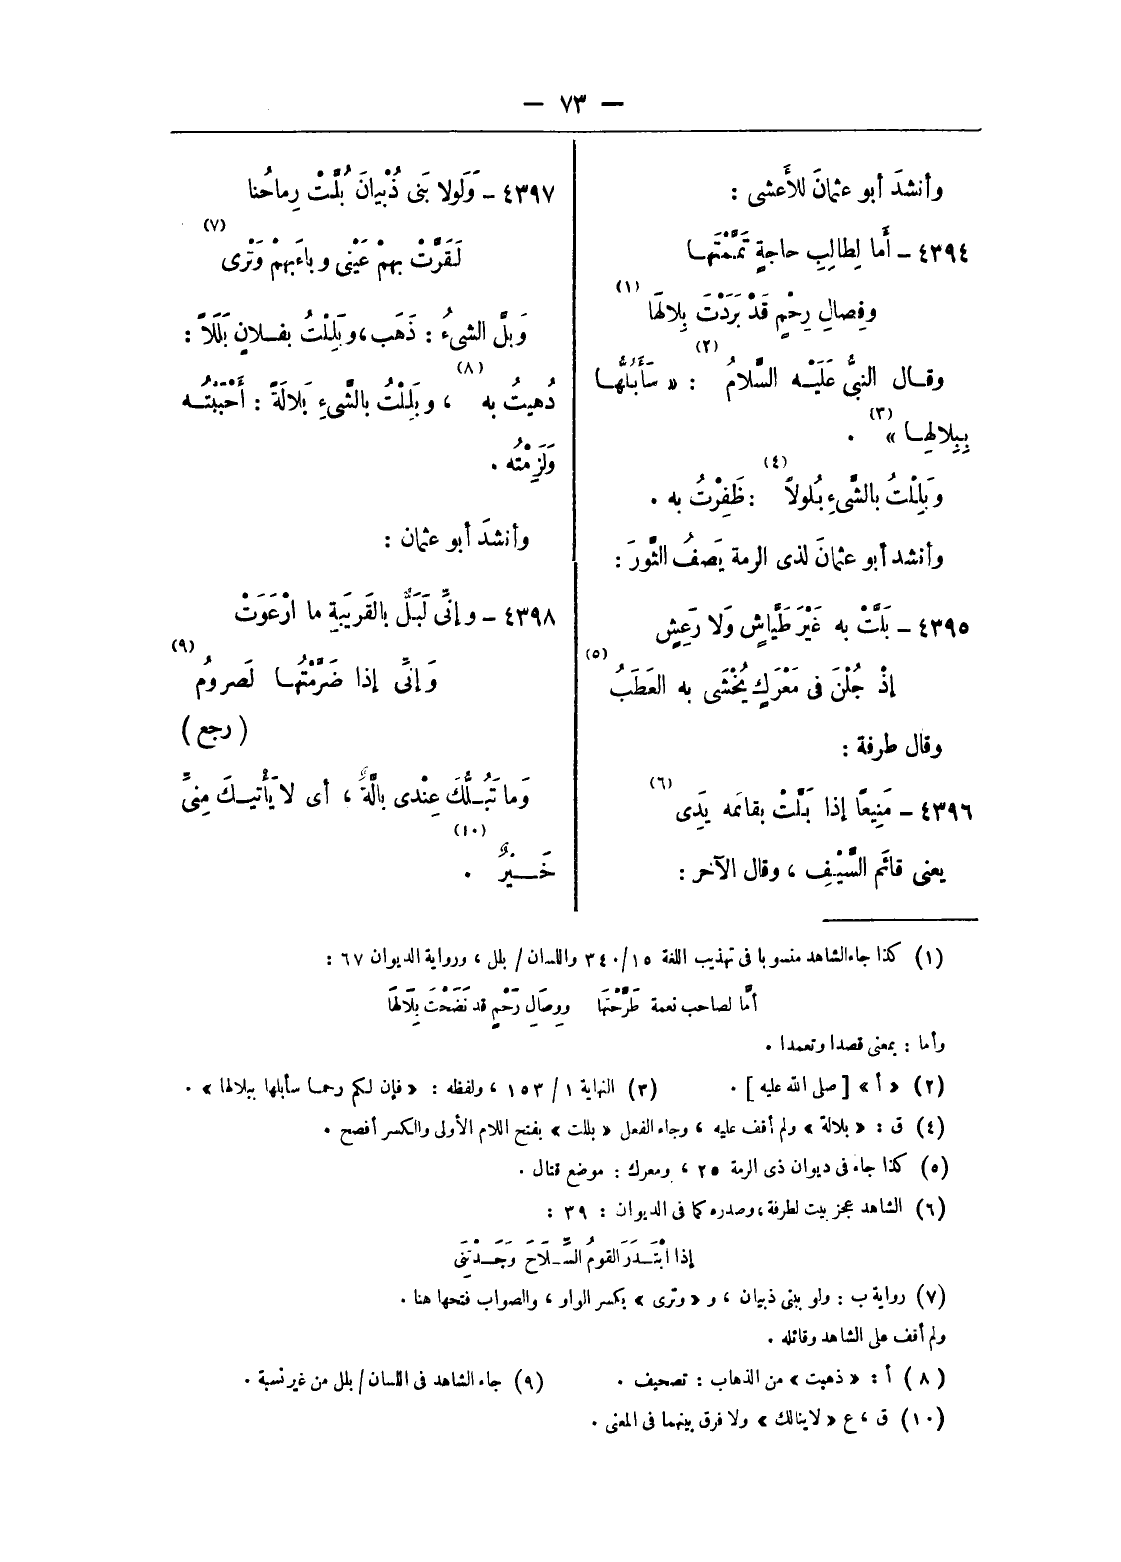 — ٧٣ —
وأنشدَ أبو عثمانَ للأَعشى :
٤٣٩٤ – أَما لِطالِبِ حاجةٍ تَمَّمْتَها
وفِصالِ رِحْمٍ قَدْ بَرَدْتَ بِلالَها (١)
وقال النبىُّ عَلَيْه السَّلامُ (٢) : « سَأَبُلُّها
بِبِلالِها » (٣) .
وَبَلِلْتُ بالشَّىءِ بُلولاً (٤) : ظَفِرْتُ به .
وأنشد أبو عثمانَ لذى الرمة يَصفُ الثَّورَ :
٤٣٩٥ – بَلَّتْ به غَيْرَ طَيَّاشٍ وَلا رَعِشٍ
إذْ جُلْنَ فى مَعْرَكٍ يُخْشَى به العَطَبُ (٥)
وقال طرفة :
٤٣٩٦ – مَنِيعًا إذا بَلَّتْ بقائمه يَدِى (٦)
يعنى قائم السَّيْفِ ، وقال الآخر :
٤٣٩٧ – وَلَولا بَنى ذُبْيانَ بُلَّتْ رِماحُنا
لَقَرَّتْ بهمْ عَيْنى وباءَبهمْ وَتْرى (٧)
وَبلَّ الشىءُ : ذَهَب ، وبَلِلْتُ بفلانٍ بَلَلاً :
دُهيتُ به (٨) ، وبَلِلْتُ بالشَّىءِ بَلالَةً : أَحْبَبْتُه
وَلَزِمْتُه .
وأنشدَ أبو عثمان :
٤٣٩٨ – وإنِّى لَبَلٌّ بالقَرِيبَةِ ما ارْعَوَتْ
وَإنِّى إذا ضَرَّمْتُها لَصرومُ (٩)
( رجع )
وَما تَبُلُّكَ عِنْدى بالَّةٌ ، أى لا يَأْتيكَ مِنِّى
خَيْرٌ (١٠) .
(١) كذا جاء الشاهد منسوبا فى تهذيب اللغة ٣٤٠/١٥ واللسان / بلل ، ورواية الديوان ٦٧ :
أمَّا لصاحب نعمة طَرَّحْتَها ووِصَالِ رَحْمٍ قد نَضَحْتَ بِلَالَها
وأما : بمعنى قصدا وتعمدا .
(٢) « أ » [ صلى الله عليه ] . (٣) النهاية ١ / ١٥٣ ، ولفظه : « فإن لكم رحما سأبلها ببلالها » .
(٤) ق : « بلالة » ولم أقف عليه ، وجاء الفعل « بللت » بفتح اللام الأولى والكسر أفصح .
(٥) كذا جاء فى ديوان ذى الرمة ٢٥ ، ومعرك : موضع قتال .
(٦) الشاهد عجز بيت لطرفة ، وصدره كما فى الديوان : ٣٩ :
إذا ابْتَدَرَ القومُ السِّلَاحَ وَجَدْتَنِى
(٧) رواية ب : ولو ببنى ذبيان ، و « وترى » بكسر الواو ، والصواب فتحها هنا .
ولم أقف على الشاهد وقائله .
(٨) أ : « ذهبت » من الذهاب : تصحيف . (٩) جاء الشاهد فى اللسان / بلل من غير نسبة .
(١٠) ق ، ع « لا ينالك » ولا فرق بينهما فى المعنى .